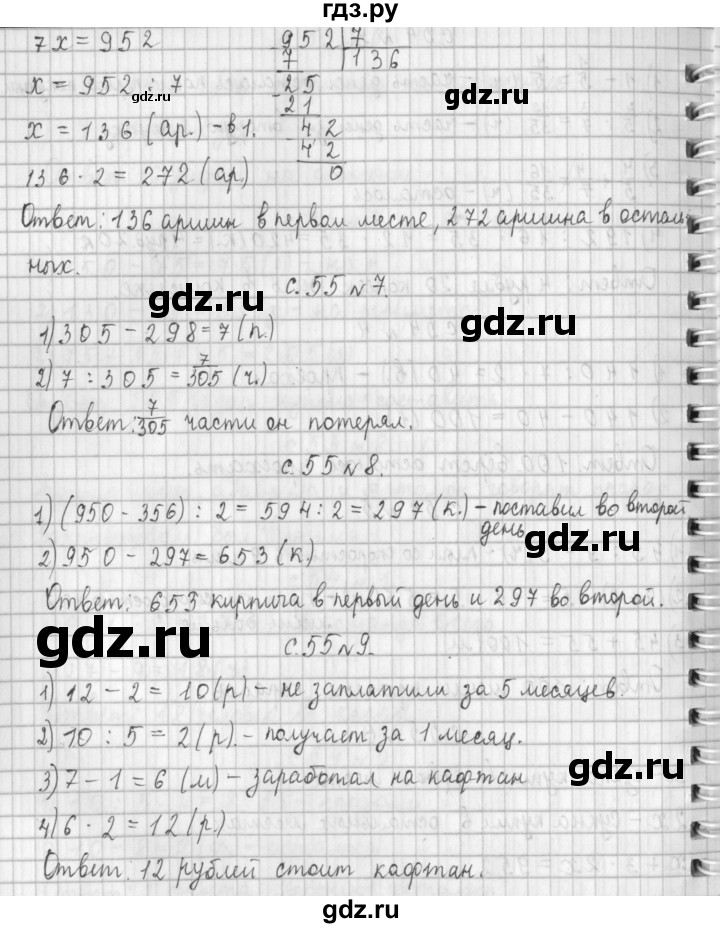 гдз.ру
7x = 952
952 | 7
x = 952 : 7
7
136
25
21
x = 136 (ар.) - в 1.
42
42
136 · 2 = 272 (ар)
0
Ответ: 136 аршин в первом месте, 272 аршина в осталь
ных.
с. 55 №7.
1) 305 - 298 = 7 (п.)
2) 7 : 305 = 7/305 (ч.)
Ответ: 7/305 части он потерял.
с. 55 №8.
1) (950 - 356) : 2 = 594 : 2 = 297 (к.) - поставил во второй
день
2) 950 - 297 = 653 (к)
Ответ: 653 кирпича в первый день и 297 во второй.
с. 55 №9.
1) 12 - 2 = 10 (р) - не заплатили за 5 месяцев.
2) 10 : 5 = 2 (р). - получает за 1 месяц.
3) 7 - 1 = 6 (м) - заработал на кафтан
4) 6 · 2 = 12 (р.)
Ответ: 12 рублей стоит кафтан.
gdz.ru
gdz.ru
gdz.ru
gdz.ru
gdz.ru
gdz.ru
gdz.ru
gdz.ru
gdz.ru
gdz.ru
gdz.ru